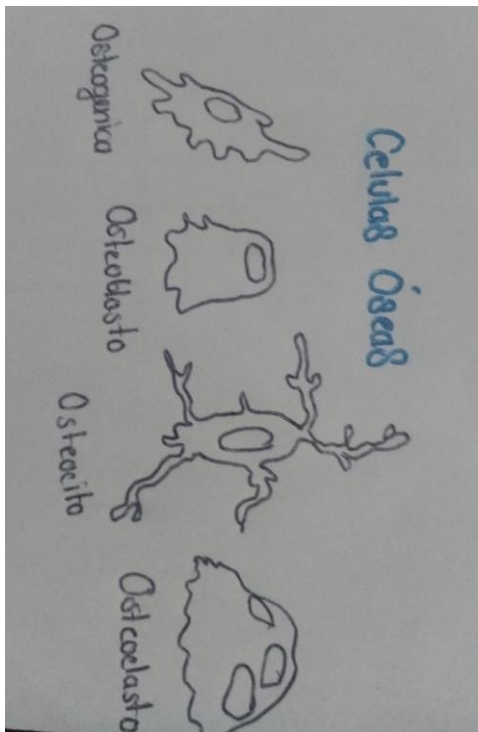 Celulas Óseas
Osteogenica
Osteoblasto
Osteocito
Osteoclasto